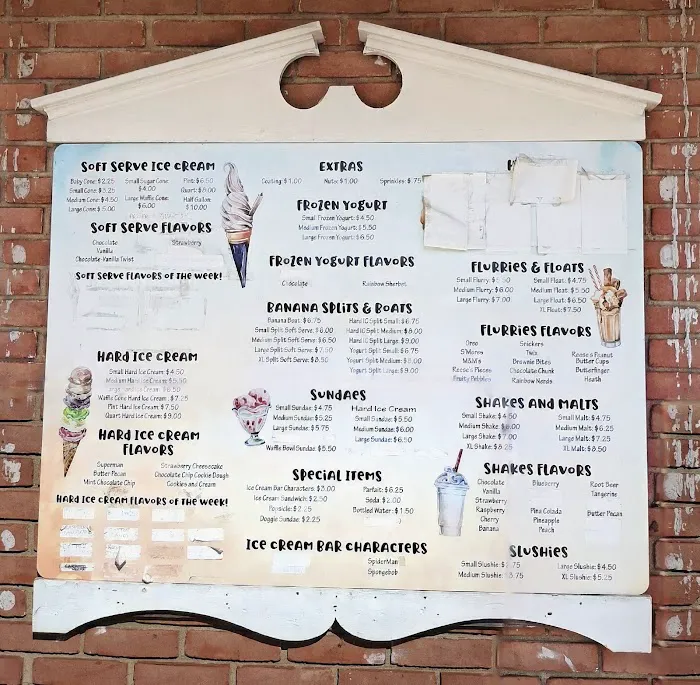 SOFT SERVE ICE CREAM
Baby Cone: $2.25 Small Sugar Cone: $4.00 Pint: $6.50
Small Cone: $3.25 Quart: $8.00
Medium Cone: $4.50 Large Waffle Cone: $6.00 Half Gallon: $10.00
Large Cone: $5.00
SOFT SERVE FLAVORS
Chocolate Strawberry
Vanilla
Chocolate-Vanilla Twist
SOFT SERVE FLAVORS OF THE WEEK!
HARD ICE CREAM
Small Hard Ice Cream: $4.50
Medium Hard Ice Cream: $5.50
Large Hard Ice Cream: $6.50
Waffle Cone Hard Ice Cream: $7.25
Pint Hard Ice Cream: $7.50
Quart Hard Ice Cream: $9.00
HARD ICE CREAM
FLAVORS
Superman Strawberry Cheesecake
Butter Pecan Chocolate Chip Cookie Dough
Mint Chocolate Chip Cookies and Cream
HARD ICE CREAM FLAVORS OF THE WEEK!
EXTRAS
Coating: $1.00 Nuts: $1.00 Sprinkles: $.75
FROZEN YOGURT
Small Frozen Yogurt: $4.50
Medium Frozen Yogurt: $5.50
Large Frozen Yogurt: $6.50
FROZEN YOGURT FLAVORS
Chocolate Rainbow Sherbet
BANANA SPLITS & BOATS
Banana Boat: $6.75 Hard IC Split Small: $6.75
Small Split Soft Serve: $6.00 Hard IC Split Medium: $8.00
Medium Split Soft Serve: $6.50 Hard IC Split Large: $9.00
Large Split Soft Serve: $7.50 Yogurt Split Small: $6.75
XL Split Soft Serve: $8.50 Yogurt Split Medium: $8.00
Yogurt Split Large: $9.00
SUNDAES
Small Sundae: $4.75 Hard Ice Cream
Medium Sundae: $5.25 Small Sundae: $5.50
Large Sundae: $5.75 Medium Sundae: $6.00
Large Sundae: $6.50
Waffle Bowl Sundae: $5.50
SPECIAL ITEMS
Ice Cream Bar Characters: $3.00 Parfait: $6.25
Ice Cream Sandwich: $2.50 Soda: $2.00
Popsicle: $2.25 Bottled Water: $1.50
Doggie Sundae: $2.25
ICE CREAM BAR CHARACTERS
SpiderMan
Spongebob
FLURRIES & FLOATS
Small Flurry: Small Float: $4.75
Medium Flurry: $6.00 Medium Float: $5.50
Large Flurry: $7.00 Large Float: $6.50
XL Float: $7.50
FLURRIES FLAVORS
Oreo Snickers Reese's Peanut
S'Mores Twix Butter Cups
M&M's Brownie Bites Butterfinger
Reese's Pieces Chocolate Chunk Heath
Fruity Pebbles Rainbow Nerds
SHAKES AND MALTS
Small Shake: $4.50 Small Malt: $4.75
Medium Shake: $6.00 Medium Malt: $6.25
Large Shake: $7.00 Large Malt: $7.25
XL Shake: $8.25 XL Malt: $8.50
SHAKES FLAVORS
Chocolate Blueberry Root Beer
Vanilla Tangerine
Strawberry
Raspberry Pina Colada Butter Pecan
Cherry Pineapple
Banana Peach
SLUSHIES
Small Slushie: Large Slushie: $4.50
Medium Slushie: XL Slushie: $5.25